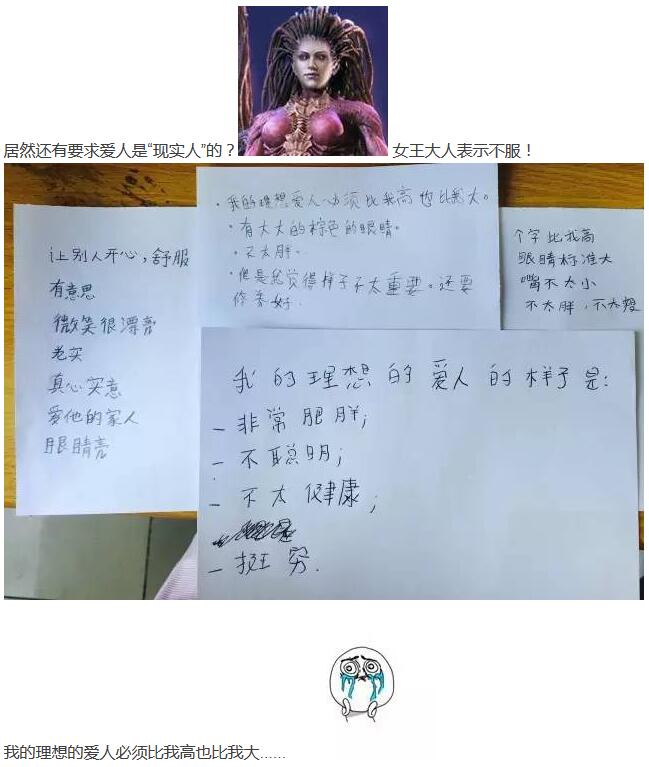 居然还有要求爱人是“现实人”的？
女王大人表示不服！
让别人开心，舒服
有意思
微笑很漂亮
老实
真心实意
爱他的家人
眼睛亮
·我的理想爱人必须比我高也比我大。
·有大大的棕色的眼睛。
·不太胖。
·但是我觉得样子不太重要。还要
你善好.
个字比我高
眼睛标准大
嘴不太小
不太胖，不太瘦
我的理想的爱人的样子是:
- 非常肥胖;
- 不聪明;
- 不太健康;
- 挺穷.
我的理想的爱人必须比我高也比我大……